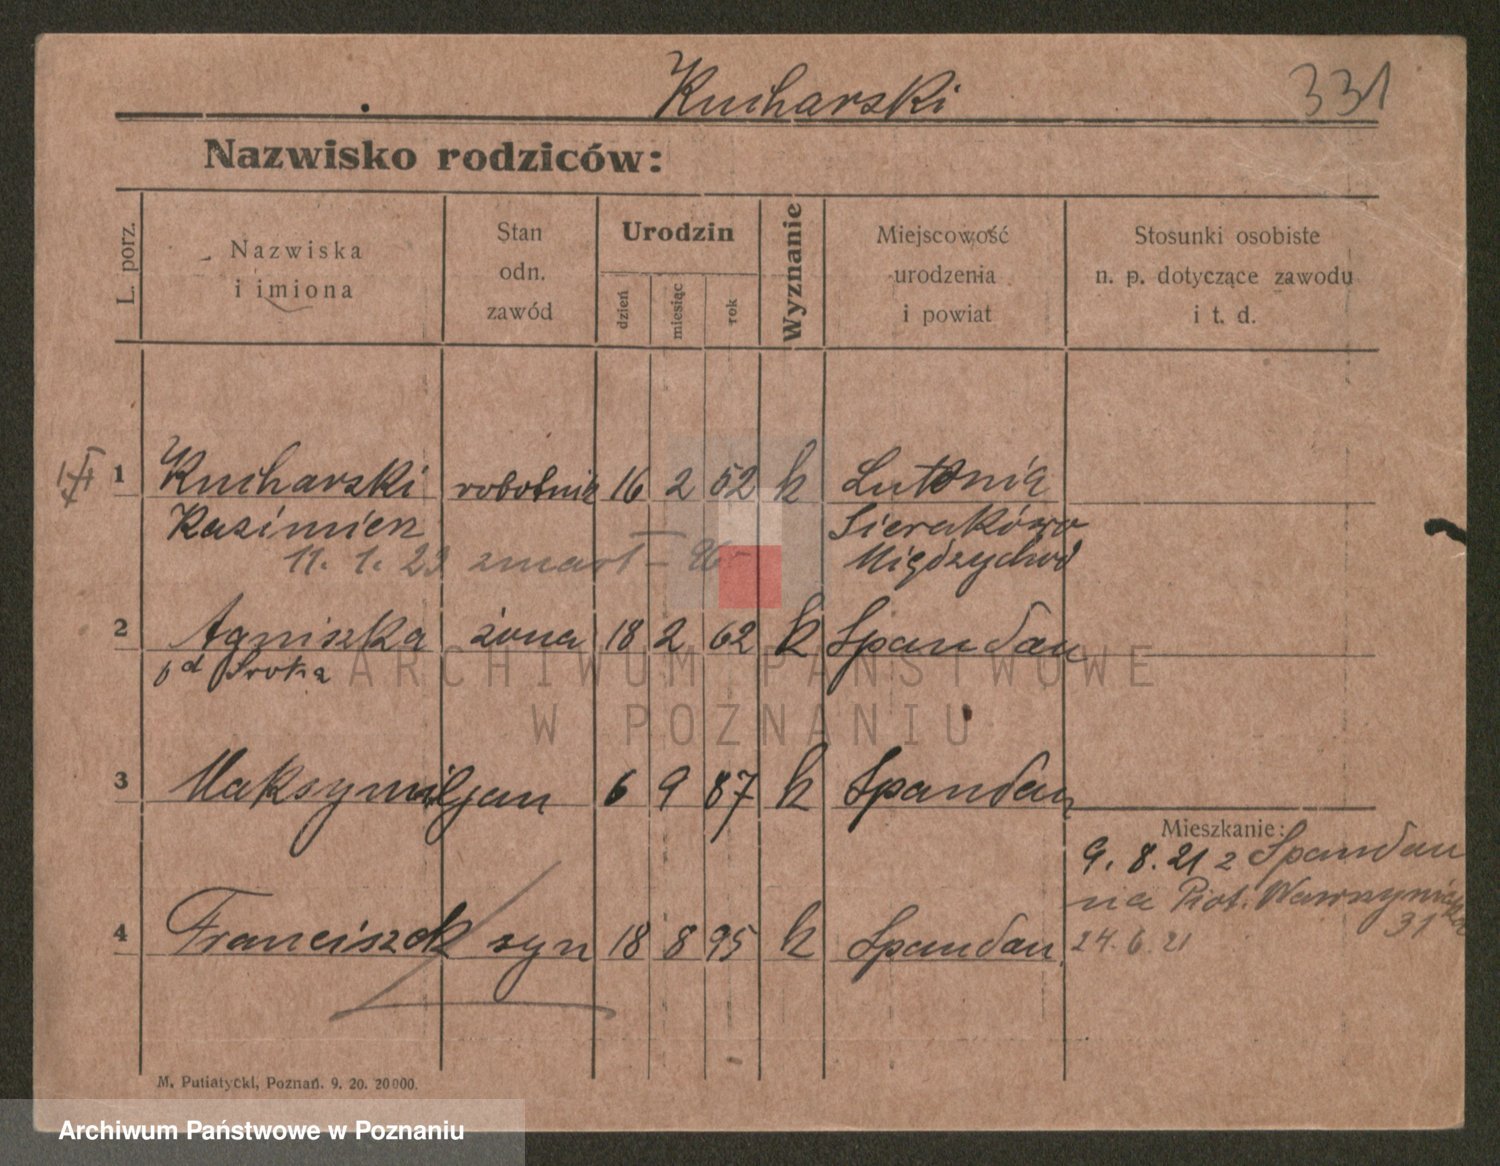 Kucharski 331
Nazwisko rodziców:
L. porz.
Nazwiska
i imiona
Stan
odn.
zawód
Urodzin
dzień
miesiąc
rok
Wyznanie
Miejscowość
urodzenia
i powiat
Stosunki osobiste
n. p. dotyczące zawodu
i t. d.
1 Kucharski robotnik 16 2 52 k Lutomia
Kazimierz Sierakowo
11. 1. 23 zmarł Międzychod
2 Agniszka żona 18 2 62 k Spandau
od Sroka
ARCHIWUM PAŃSTWOWE
W POZNANIU
3 Maksymiljan 6 9 87 k Spandau
Mieszkanie:
9. 8. 21 z Spandau
na Piot. Wawrzyniaka
31
4 Franciszek syn 18 8 95 k Spandau
24. 6. 21
M. Putiatycki, Poznań. 9. 20. 20000.
Archiwum Państwowe w Poznaniu